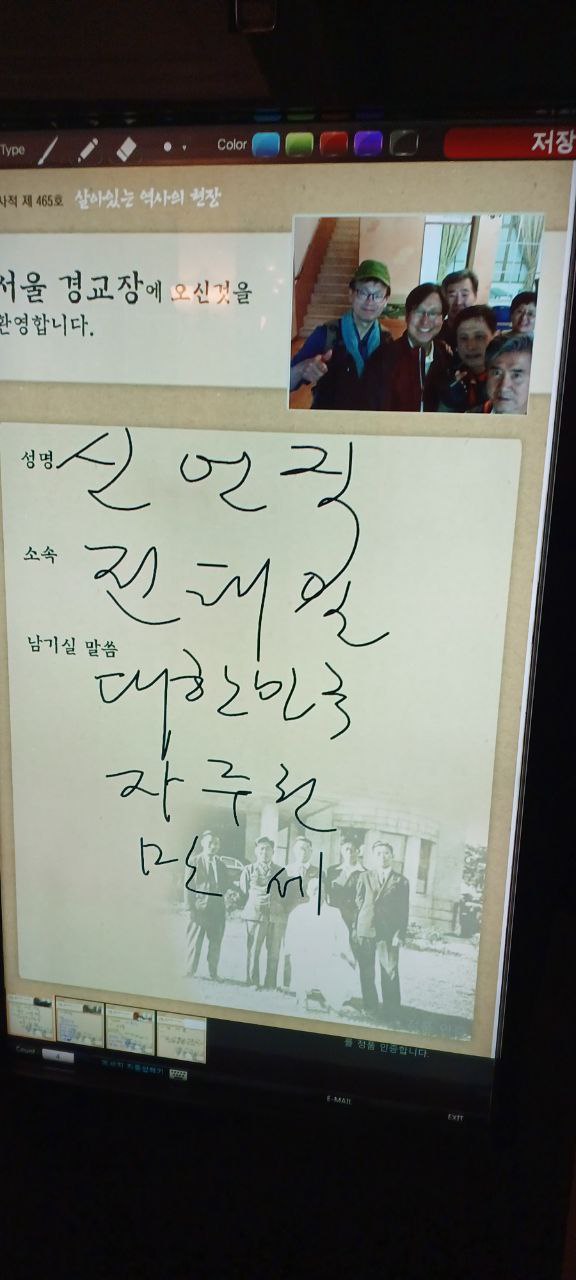 Type Color 저장
사적 제 465호 살아있는 역사의 현장
서울 경교장에 오신것을
환영합니다.
성명 신언직
소속 전태일
남기실 말씀
대한민국
자주권
만세
를 성품 인증합니다.
Count 4
E-MAIL
EXIT